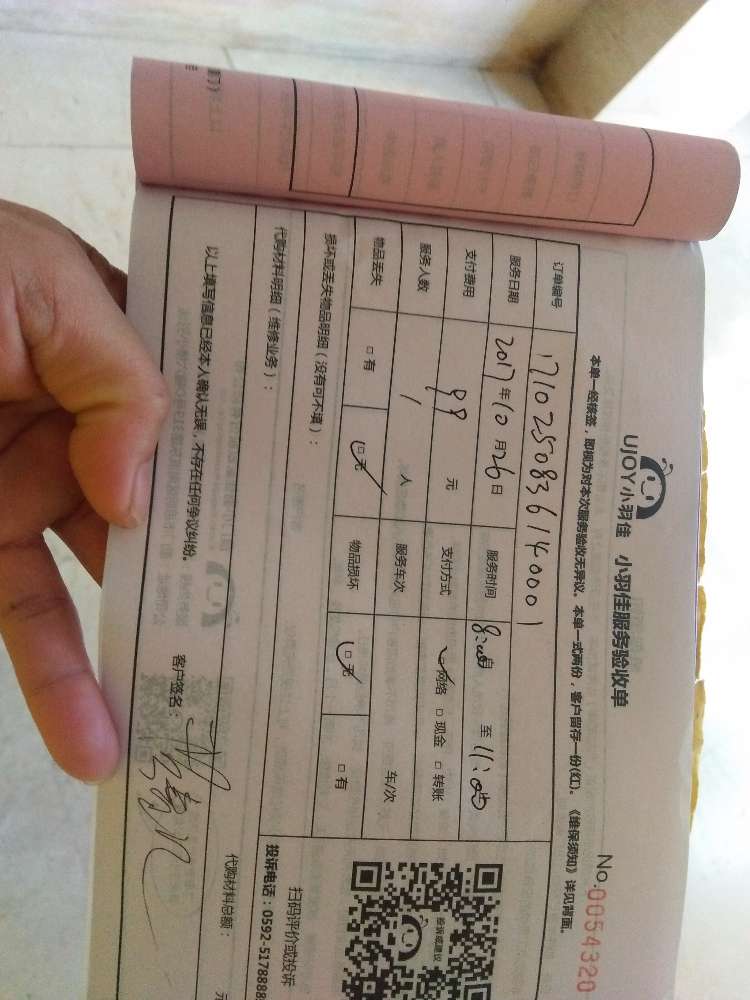 UJOY小羽佳 小羽佳服务验收单
No.0054320
本单一经核签，即视为对本次服务验收无异议。本单一式两份，客户留存一份(红)。《维保须知》详见背面。
订单编号 1710250836140001
服务日期 2017年10月26日 服务时间 8:00 自 至 11:00
支付费用 99 元 支付方式 ☑网络 □现金 □转账
服务人数 1 人 服务车次 车/次
物品丢失 □有 ☑无 物品损坏 ☑无 □有
损坏或丢失物品明细（没有可不填）：
代购材料明细（维修业务）：
代购材料总额： 元
投诉或建议
扫码评价或投诉
投诉电话：0592-5178888
以上填写信息已经本人确认无误，不存在任何争议纠纷。 客户签名：